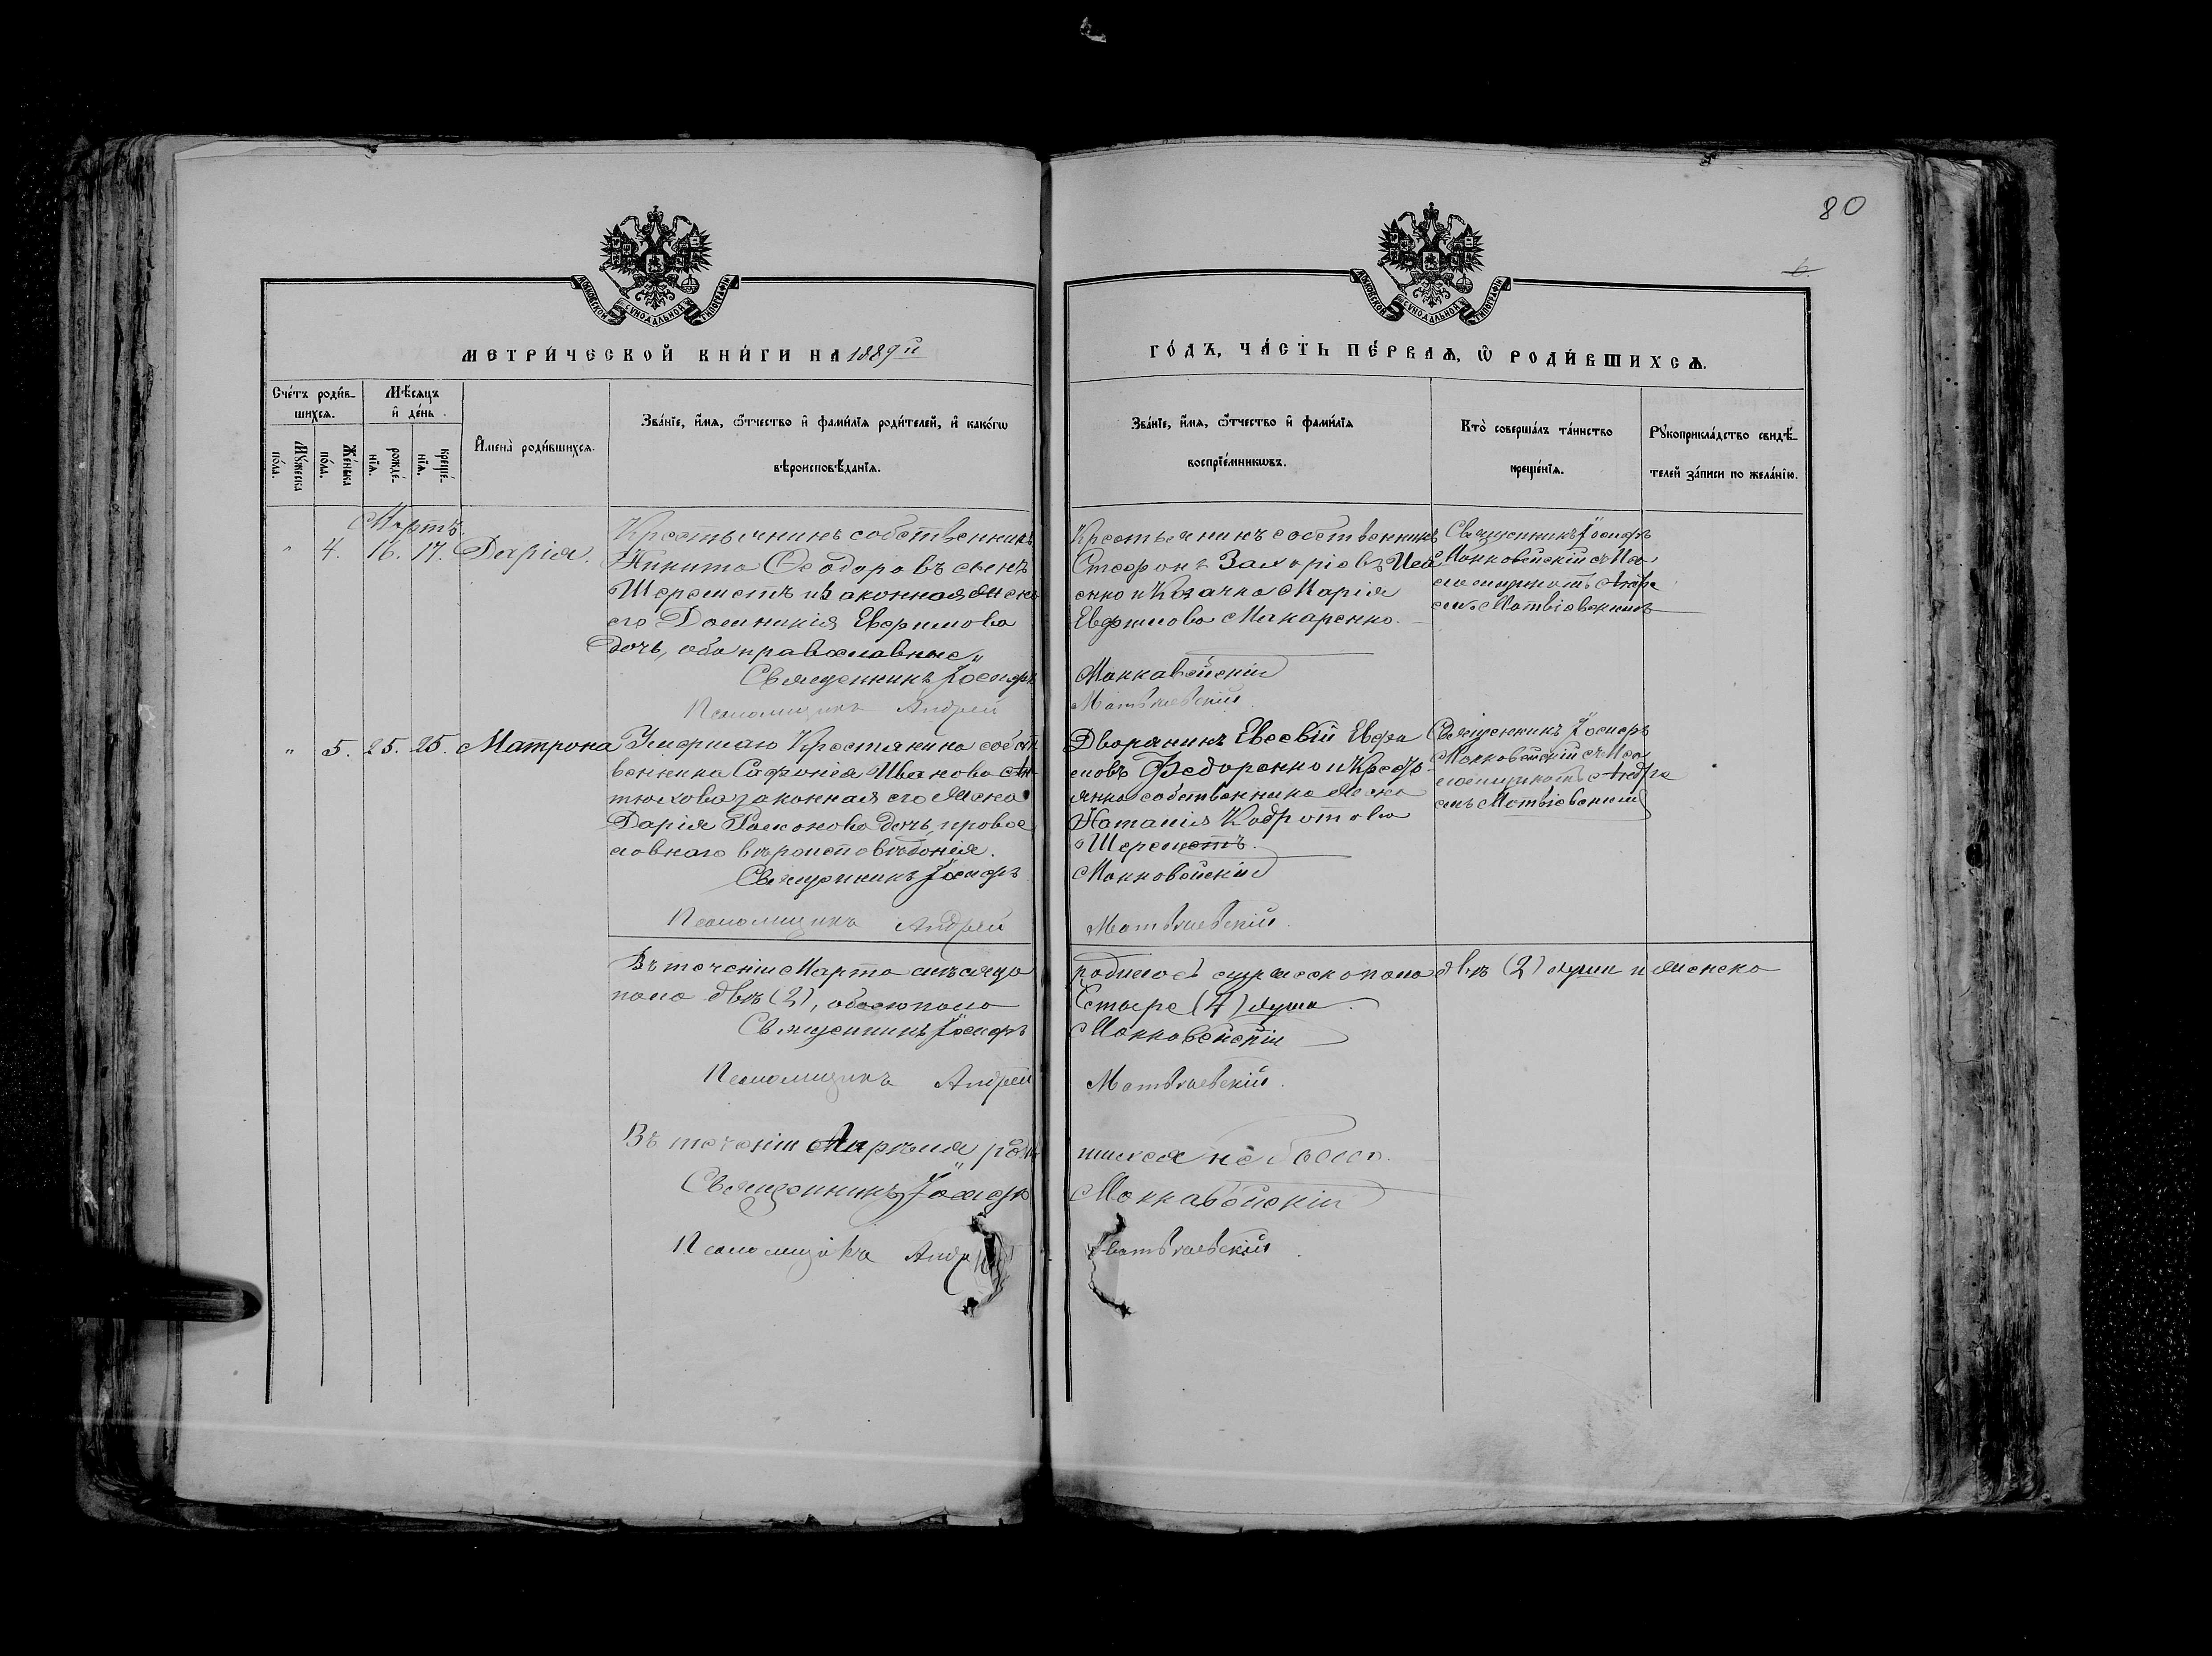 80
6.
МОСКОВСКОЙ СѴНОДАЛЬНОЙ ТИПОГРАФІИ
МОСКОВСКОЙ СѴНОДАЛЬНОЙ ТИПОГРАФІИ
МЕТРИ́ЧЕСКОЙ КНИ́ГИ НА 1889й
ГО́ДЪ, ЧА́СТЬ ПЕ́РВАѦ, Ѽ РОДИ́ВШИХСѦ.
Сче́тъ роди́в-
шихсѧ.
Мꙋ́жеска
по́ла.
Же́нька
по́ла.
Мѣ́сѧцъ
и҆ де́нь
рожде́-
нїѧ.
креще́-
нїѧ.
И҆мена̀ роди́вшихсѧ.
Зва́нїе, и҆́мѧ, ѻ҆́тчество и҆ фами́лїѧ роди́телей, и҆ како́гѡ
вѣроисповѣ́данїѧ.
Зва́нїе, и҆́мѧ, ѻ҆́тчество и҆ фами́лїѧ
воспрїе́мникѡвъ.
Кто̀ соверша́лъ та́инство
креще́нїѧ.
Рꙋкоприкла́дство свидѣ́-
телей за́писи по жела́нїю.
Мартъ
" 4. 16. 17. Дарія.
Крестьянинъ собственникъ
Никита Ѳеодоровъ сынъ
Шереметъ и законная жена
его Домникія Евфимова
дочь, оба православные"
Священникъ Іосифъ
Псаломщикъ Андрей
Крестьянинъ собственникъ
Стефанъ Захаріевъ
енко и Козачка Марія
Евфимова Макаренко.
Маккавейскій
Матвіевскій
Священникъ Іосифъ
Маккавейскій съ Пса
ломщикомъ Андре
емъ Матвіевскимъ
" 5. 25. 25. Матрона
Умершаго Крестьянина собст
венника Софонія Иванова Ан
тюхова законная его жена
Дарія дочь, правос
лавнаго вѣроисповѣданія.
Священникъ Іосифъ
Псаломщикъ Андрей
Дворянинъ Евсевій Евфи
мовъ Федоренко и Кресть
янка собственника жена
Наталія Кодратова
Шереметъ.
Маккавейскій
Матвіевскій.
Священникъ Іосифъ
Маккавейскій съ Пса
ломщикомъ Андре
емъ Матвіевскимъ
Въ теченіи Марта мѣсяца родилось мужеска пола двѣ (2) души и женска
пола двѣ (2), обоего пола Четыре (4) души.
Священникъ Іосифъ Маккавейскій
Псаломщикъ Андрей Матвіевскій.
Въ теченіи Апрѣля родив
шихся не было.
Священникъ Іосифъ Маккавейскій
Псаломщикъ Андрей Матвіевскій.